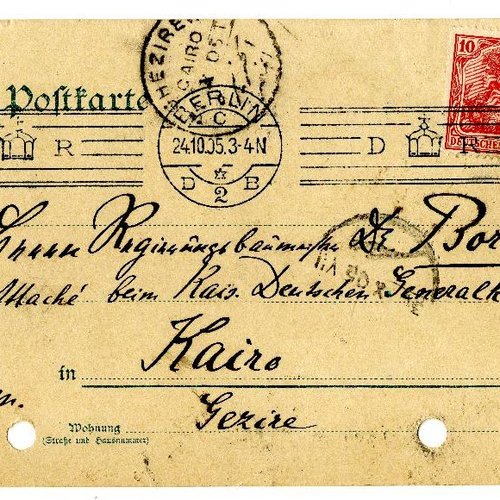 GHEZIREH
CAIRO
10
Postkarte
BERLIN
C
R
24.10.05.3-4N
D
R
DEUTSCHES
D
B
2
Herrn Regierungsbaumeister Dr. Bor
Attaché beim Kais. Deutschen Generalk
in Kairo
Gezire
Wohnung
(Straße und Hausnummer)